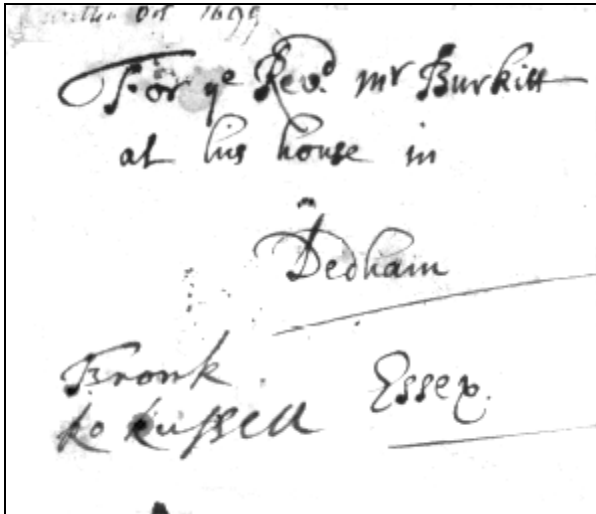 Oct 1699
For ye Revd. mr Burkitt
at his house in
Dedham
Essex.
Frank.
Ro Russell